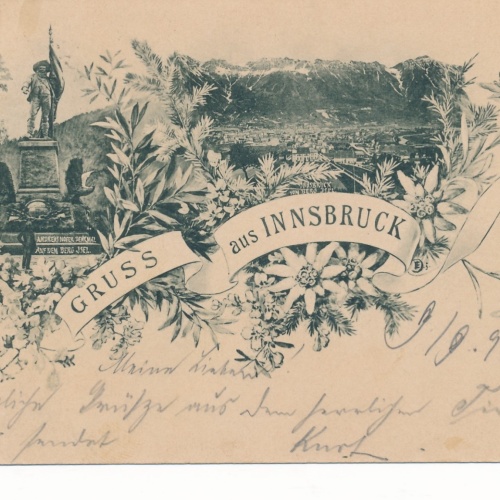 ANDREAS HOFER DENKMAL
AUF DEM BERG ISEL.
GRUSS aus INNSBRUCK
9/9. 9
Meine Lieben!
liche Grüsze aus dem herrlichen
sendet Kurt